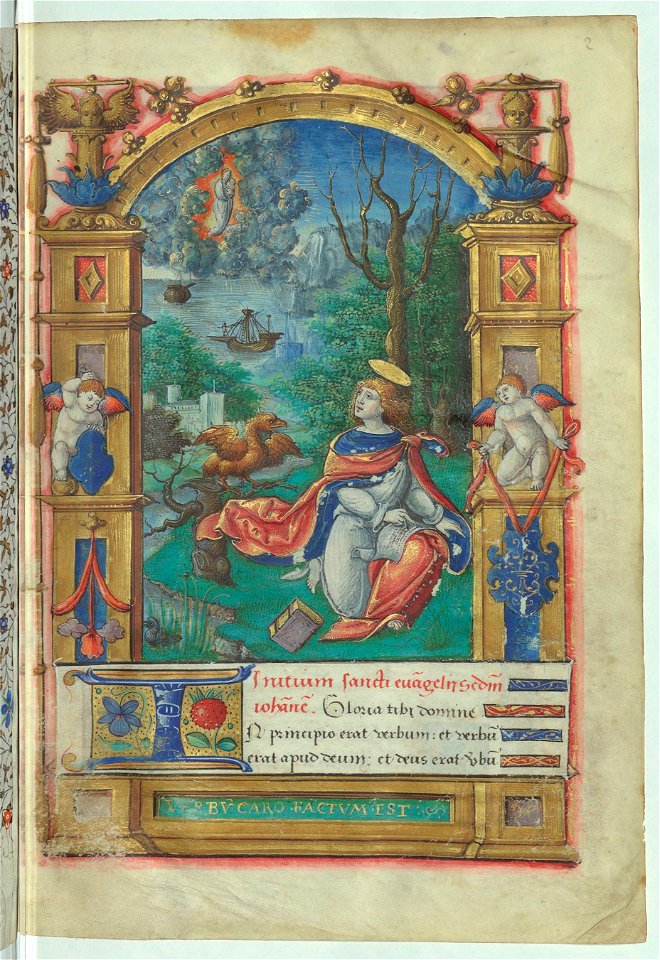 2
Initium sancti euãgelij scdm̃
iohãnẽ. Gloria tibi domine
IN principio erat verbum: et verbũ
erat apud deum: et deus erat Vbũ
VERBV̄ CARO FACTVM EST: